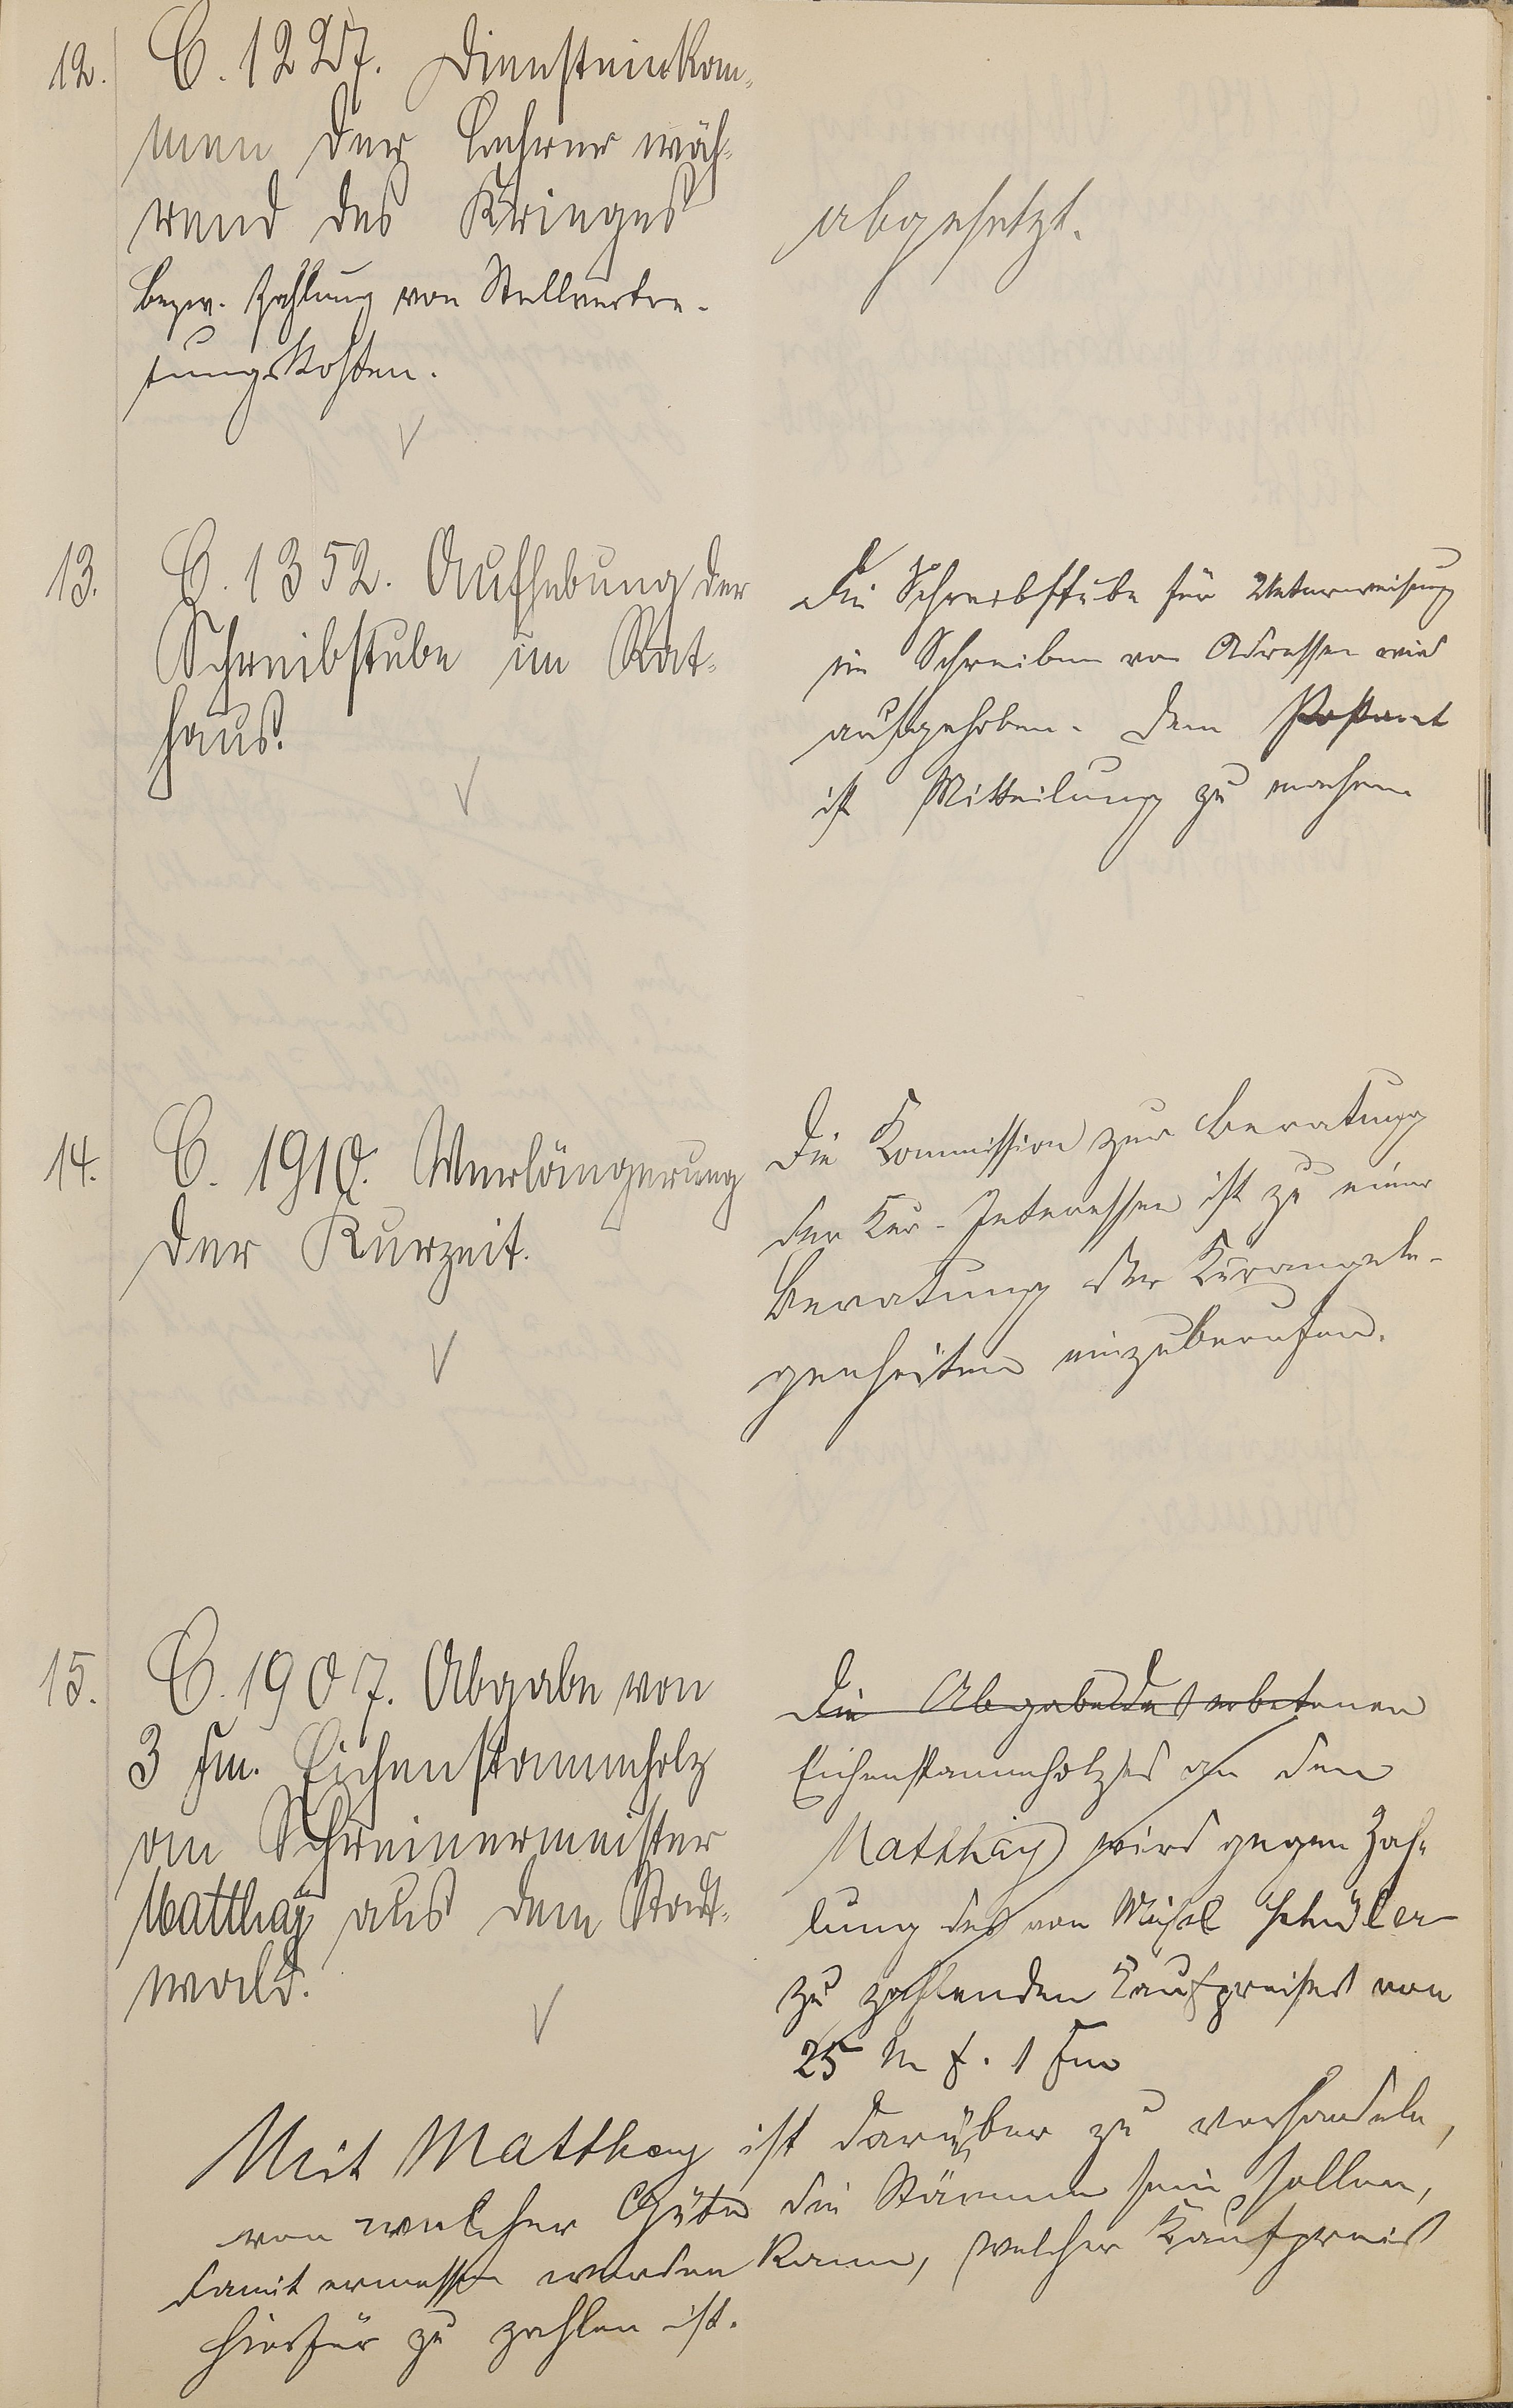 12. C. 1227. Diensteinkom-
men der Lehrer wäh-
rend des Krieges
bezw. Zahlung von Stellvertre-
tungskosten.
abgesetzt.
13. C. 1352. Aufhebung der
Schreibstube im Rat-
haus.
Die Schreibstube für Unterweisung
im Schreiben von Adressen wird
aufgehoben. Dem Postamt
ist Mitteilung zu machen
14. C. 1910. Verlängerung
der Kurzeit.
Die Kommission zur Beratung
der Kur-Interessen ist zu einer
Beratung der Kurangele-
genheiten einzuberufen.
15. C. 1907. Abgabe von
3 Fm. Eichenstammholz
an Schreinermeister
Matthäy aus dem Stadt-
wald.
Die Abgabe des erbetenen
Eichenstammholzes an den
Matthäy wird gegen Zah-
lung des von Schüler
zu zahlenden Kaufpreises von
25 M f. 1 Fm
Mit Matthay ist darüber zu verhandeln,
von welcher Güte die Stämme sein sollen,
damit ermessen werden kann, welcher Kaufpreis
hierfür zu zahlen ist.